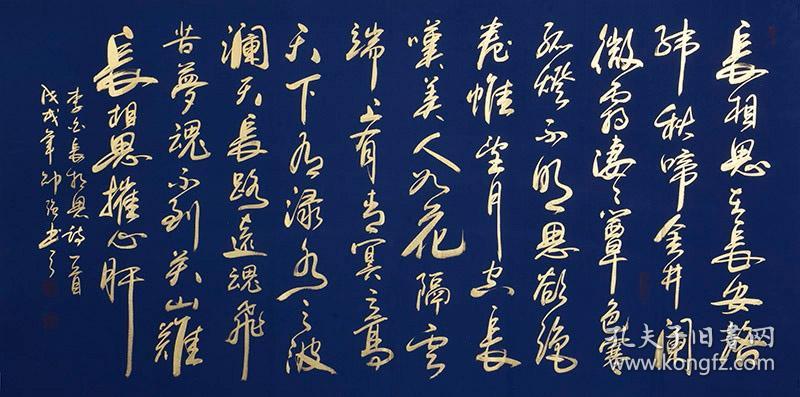 長相思在長安絡
緯秋啼金井闌
微霜淒々簟色寒
孤燈不明思欲絕
卷帷望月空長
嘆美人如花隔雲
端上有青冥之高
天下有淥水之波
瀾天長路遠魂飛
苦夢魂不到关山難
長相思摧心肝
李白長相思詩一首
戊戌年书
孔夫子旧书网
www.kongfz.com